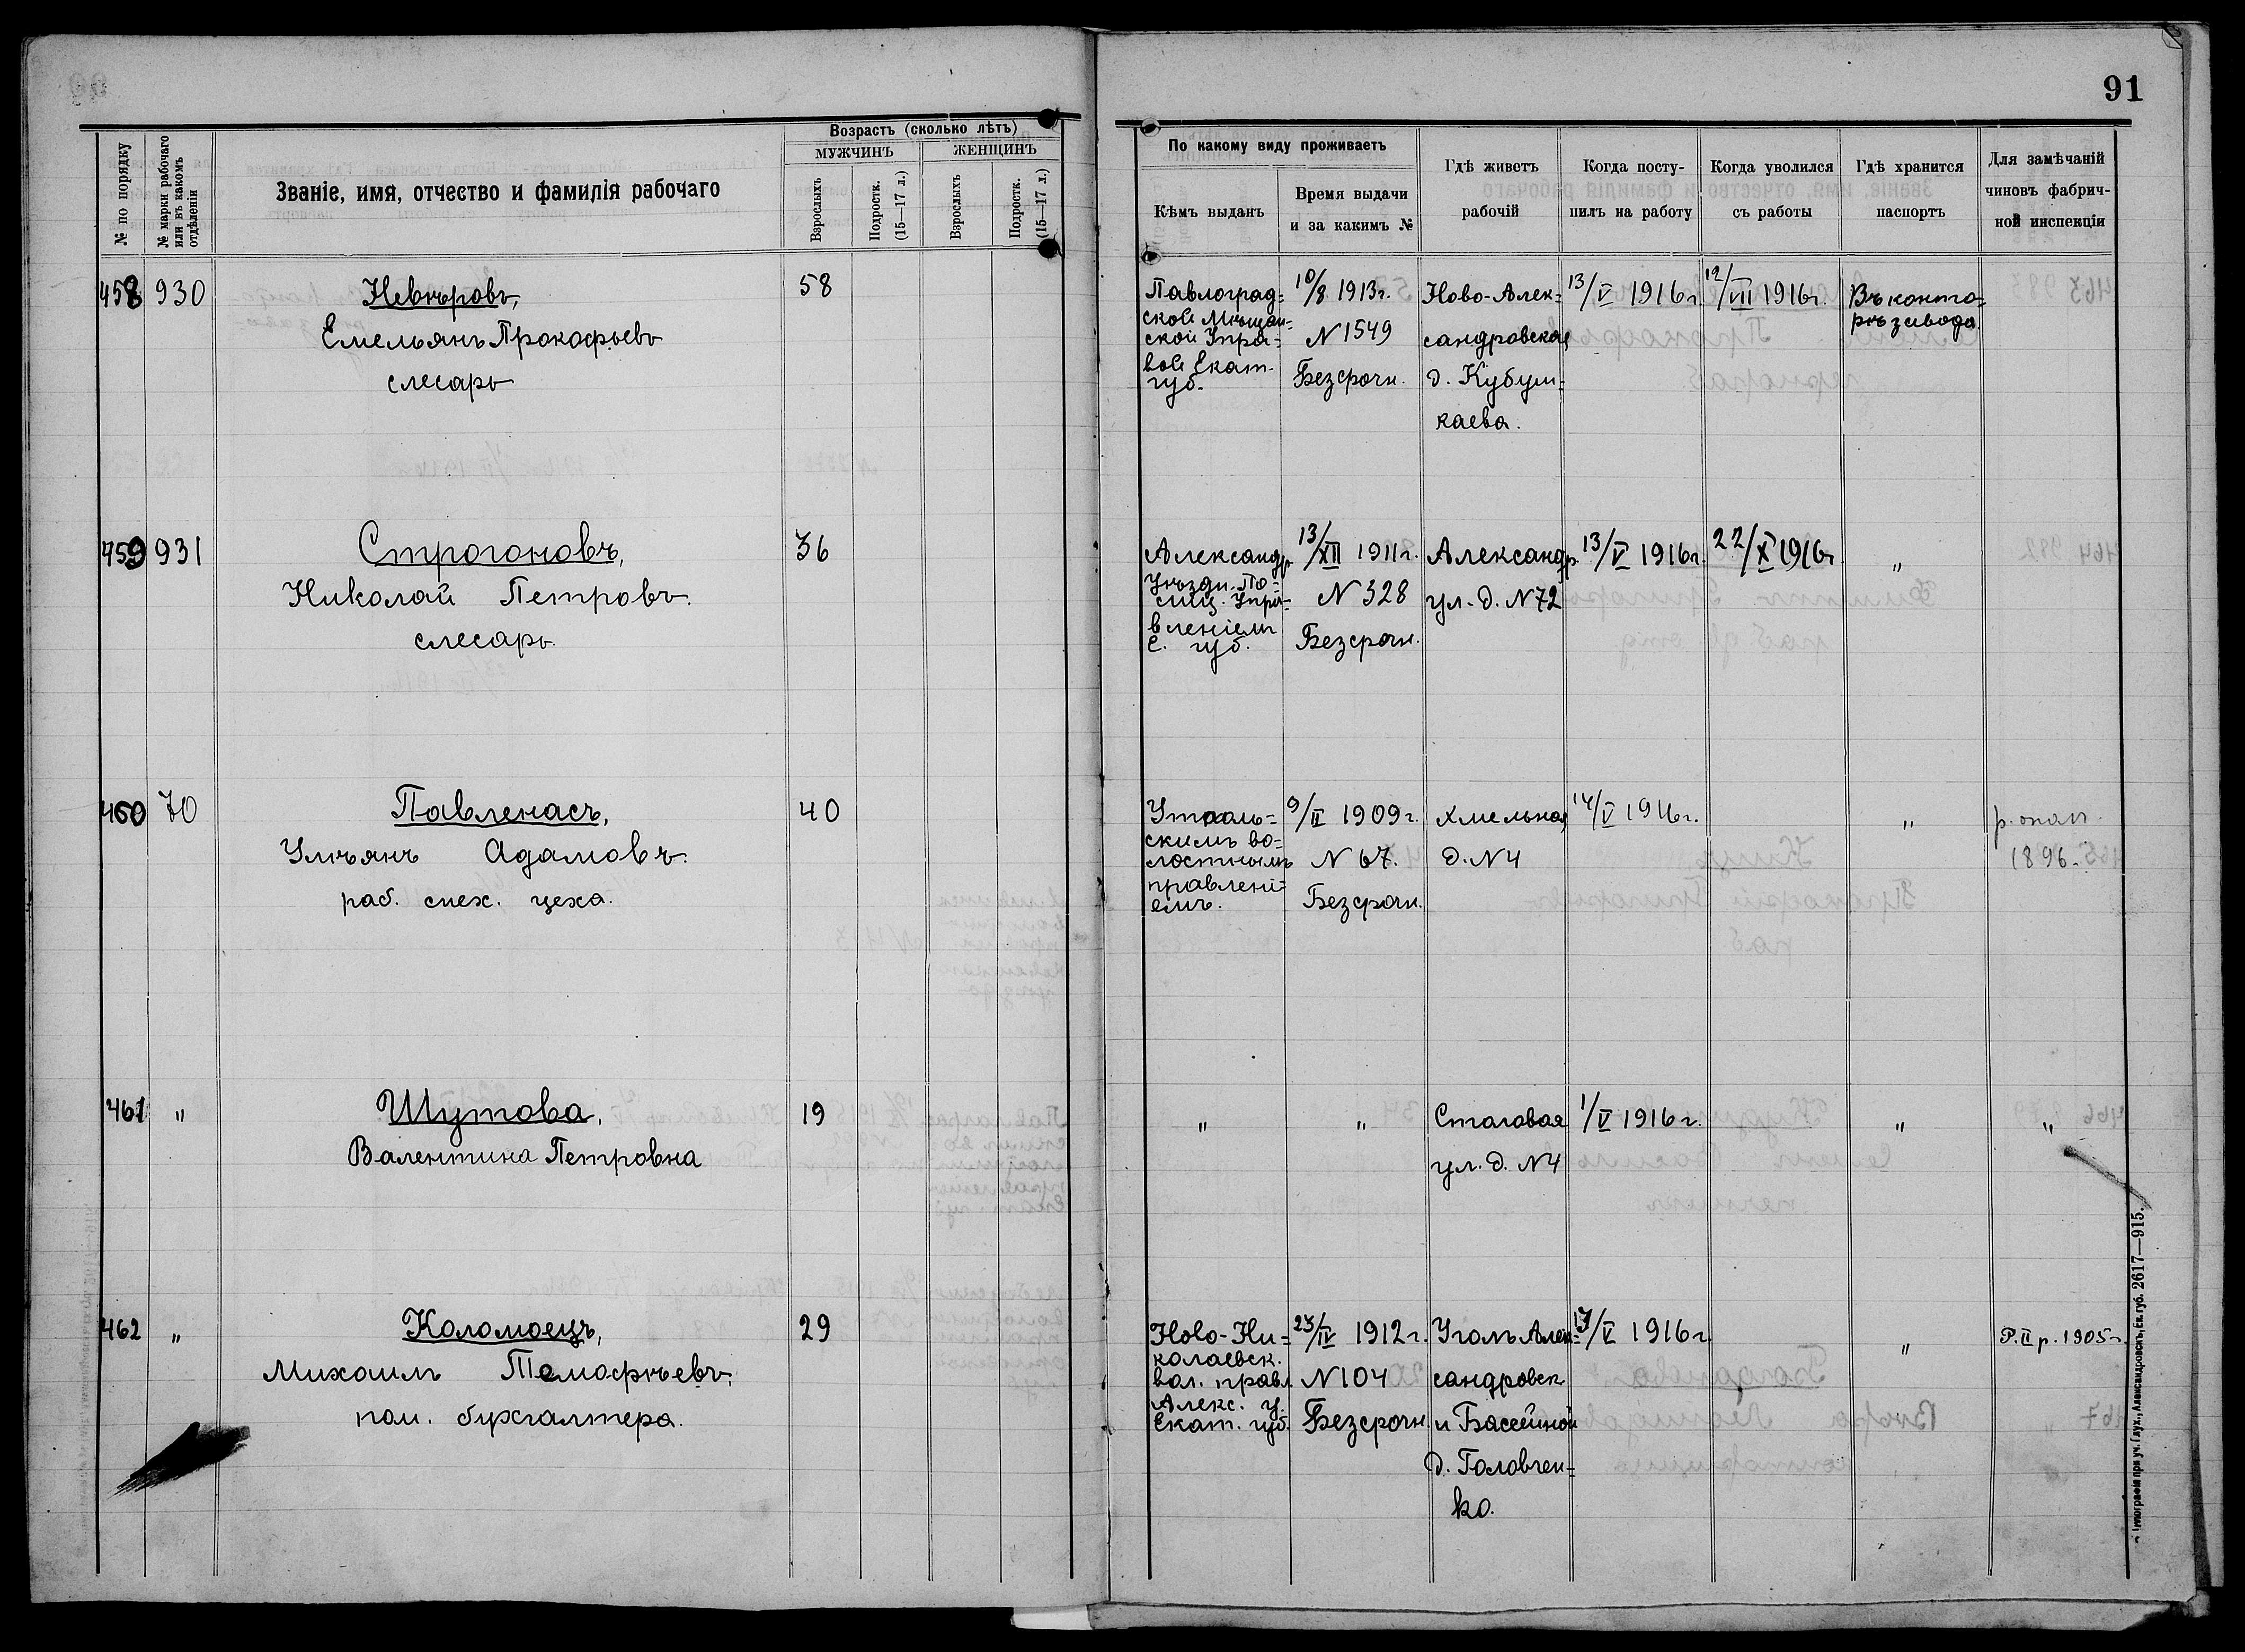 91
№ по порядку
№ марки рабочаго или въ какомъ отдѣленіи
Званіе, имя, отчество и фамилія рабочаго
Возрастъ (сколько лѣтъ)
МУЖЧИНЪ
ЖЕНЩИНЪ
Взрослыхъ
Подростк. (15—17 л.)
Взрослыхъ
Подростк. (15—17 л.)
По какому виду проживаетъ
Кѣмъ выданъ
Время выдачи
и за какимъ №
Гдѣ живетъ
рабочій
Когда посту-
пилъ на работу
Когда уволился
съ работы
Гдѣ хранится
паспортъ
Для замѣчаній
чиновъ фабрич-
ной инспекціи
458 930
Невѣровъ,
Емельянъ Прокофьевъ
слесарь
58
Павлоград=
ской Мѣщан=
ской Упра=
вой Екат.
губ.
10/8 1913г.
N 1549
Безсрочн.
Ново-Алек=
сандровская
д. Кубуш=
каева.
13/V 1916г.
12/VII 1916г.
Въ конто=
рѣ завода.
459 931
Строгоновъ,
Николай Петровъ.
слесарь.
36
Александр.
Уѣздн. По=
лиц. Упра=
вленіемъ
Е. губ.
13/XII 1911г.
N 328
Безсрочн.
Александр.
ул. д. N 72
13/V 1916г.
22/X 1916г
"
460 70
Павленасъ,
Ульянъ Адамовъ.
раб. снех. цеха.
40
скимъ во=
лостнымъ
правлені=
емъ.
9/II 1909г.
N 67.
Безсрочн.
Хмельная
д. N 4
14/V 1916г.
"
р. опол.
1896.
461 "
Шутова,
Валентина Петровна
19
"
"
Столовая
ул. д. N 4
1/V 1916г.
"
"
462 "
Коломоецъ,
Михаилъ Тимофѣевъ.
пом. бухгалтера.
29
Ново-Ни=
колаевск.
вол. правл.
Алекс. у.
Екат. губ.
23/IV 1912г.
N 104
Безсрочн.
Уголъ Алек=
сандровск
и Бассейной
д. Головчен=
ко.
17/V 1916г
"
Р. II р. 1905г.
Типографія при уч. Глух., Александровскъ, Ек. губ. 2617—915.